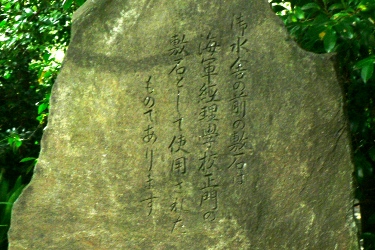 清水舎の前の敷石は
海軍経理学校正門の
敷石として使用された
ものであります